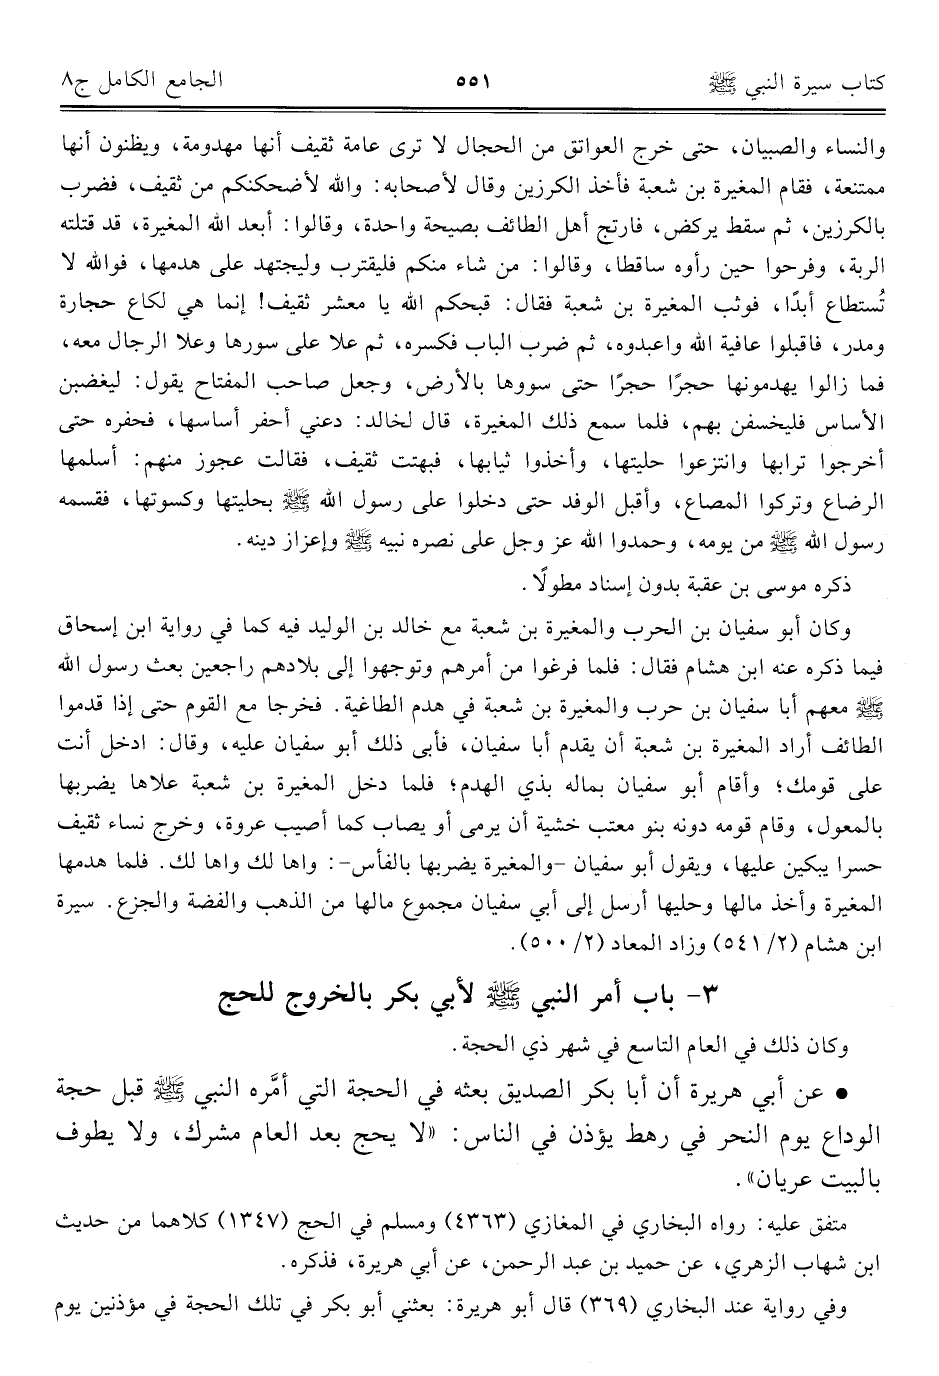 كتاب سيرة النبي ﷺ ٥٥١ الجامع الكامل ج٨
والنساء والصبيان، حتى خرج العواتق من الحجال لا ترى عامة ثقيف أنها مهدومة، ويظنون أنها
ممتنعة، فقام المغيرة بن شعبة فأخذ الكرزين وقال لأصحابه: والله لأضحكنكم من ثقيف، فضرب
بالكرزين، ثم سقط يركض، فارتج أهل الطائف بصيحة واحدة، وقالوا: أبعد الله المغيرة، قد قتلته
الربة، وفرحوا حين رأوه ساقطا، وقالوا: من شاء منكم فليقترب وليجتهد على هدمها، فوالله لا
تُستطاع أبدًا، فوثب المغيرة بن شعبة فقال: قبحكم الله يا معشر ثقيف! إنما هي لكاع حجارة
ومدر، فاقبلوا عافية الله واعبدوه، ثم ضرب الباب فكسره، ثم علا على سورها وعلا الرجال معه،
فما زالوا يهدمونها حجرًا حجرًا حتى سووها بالأرض، وجعل صاحب المفتاح يقول: ليغضبن
الأساس فليخسفن بهم، فلما سمع ذلك المغيرة، قال لخالد: دعني أحفر أساسها، فحفره حتى
أخرجوا ترابها وانتزعوا حليتها، وأخذوا ثيابها، فبهتت ثقيف، فقالت عجوز منهم: أسلمها
الرضاع وتركوا المصاع، وأقبل الوفد حتى دخلوا على رسول الله ﷺ بحليتها وكسوتها، فقسمه
رسول الله ﷺ من يومه، وحمدوا الله عز وجل على نصره نبيه ﷺ وإعزاز دينه.
ذكره موسى بن عقبة بدون إسناد مطولًا.
وكان أبو سفيان بن الحرب والمغيرة بن شعبة مع خالد بن الوليد فيه كما في رواية ابن إسحاق
فيما ذكره عنه ابن هشام فقال: فلما فرغوا من أمرهم وتوجهوا إلى بلادهم راجعين بعث رسول الله
ﷺ معهم أبا سفيان بن حرب والمغيرة بن شعبة في هدم الطاغية. فخرجا مع القوم حتى إذا قدموا
الطائف أراد المغيرة بن شعبة أن يقدم أبا سفيان، فأبى ذلك أبو سفيان عليه، وقال: ادخل أنت
على قومك؛ وأقام أبو سفيان بماله بذي الهدم؛ فلما دخل المغيرة بن شعبة علاها يضربها
بالمعول، وقام قومه دونه بنو معتب خشية أن يرمى أو يصاب كما أصيب عروة، وخرج نساء ثقيف
حسرا يبكين عليها، ويقول أبو سفيان -والمغيرة يضربها بالفأس-: واها لك واها لك. فلما هدمها
المغيرة وأخذ مالها وحليها أرسل إلى أبي سفيان مجموع مالها من الذهب والفضة والجزع. سيرة
ابن هشام (٢/ ٥٤١) وزاد المعاد (٢/ ٥٠٠).
٣- باب أمر النبي ﷺ لأبي بكر بالخروج للحج
وكان ذلك في العام التاسع في شهر ذي الحجة.
• عن أبي هريرة أن أبا بكر الصديق بعثه في الحجة التي أمَّره النبي ﷺ قبل حجة
الوداع يوم النحر في رهط يؤذن في الناس: «لا يحج بعد العام مشرك، ولا يطوف
بالبيت عريان».
متفق عليه: رواه البخاري في المغازي (٤٣٦٣) ومسلم في الحج (١٣٤٧) كلاهما من حديث
ابن شهاب الزهري، عن حميد بن عبد الرحمن، عن أبي هريرة، فذكره.
وفي رواية عند البخاري (٣٦٩) قال أبو هريرة: بعثني أبو بكر في تلك الحجة في مؤذنين يوم